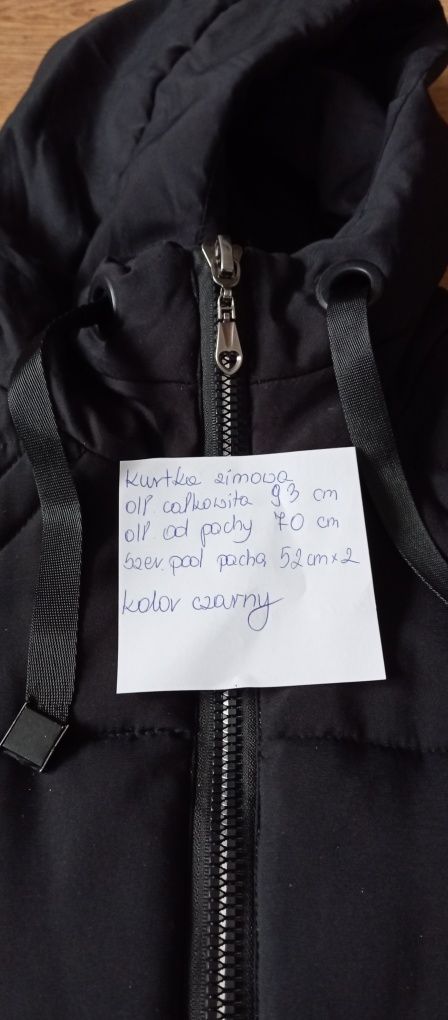 Kurtka zimowa
dł. całkowita 93 cm
dł. od pachy 70 cm
Szer. pod pachą 52cm×2
kolor czarny